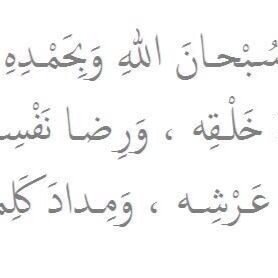 سُبْحانَ اللهِ وَبِحَمْدِهِ
خَلْـقِه ، وَرِضـا نَفْسِـ
عَـرْشِـه ، وَمِـدادَ كَلِمـ